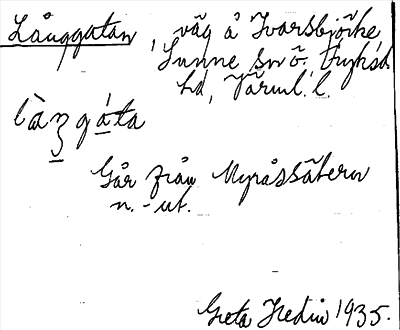 Långgatan, väg å Ivarsbjörke,
Sunne sn ö. Fryksd.
hd, Värml. l.
làŋgáta
Går från Myråssätern
n. - ut.
Greta Hedin 1935.